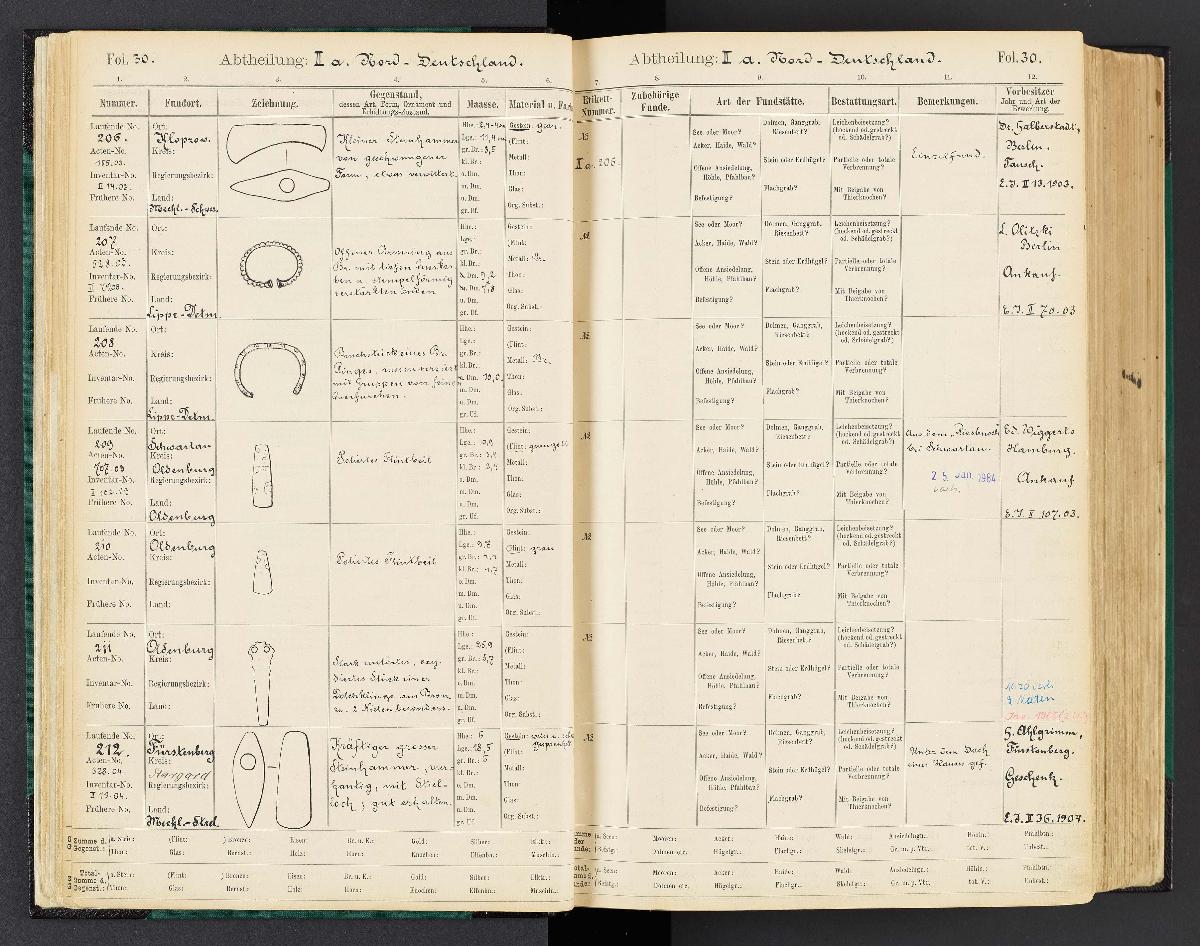 Fol. 30.
Abtheilung: II a. Nord-Deutschland.
Abtheilung: II a. Nord-Deutschland.
Fol. 30.
1. 2. 3. 4. 5. 6. 7. 8. 9. 10. 11. 12.
Nummer.
Fundort.
Zeichnung.
Gegenstand,
dessen Art, Form, Ornament und
Erhaltungs-Zustand.
Maasse.
Material u. Farbe
Etikett-
Nummer.
Zubehörige
Funde.
Art der Fundstätte.
Bestattungsart.
Bemerkungen.
Vorbesitzer
Jahr und Art der
Erwerbung.
Laufende No.
206.
Acten-No.
155.03.
Inventar-No.
II 14.02.
Frühere No.
Ort:
Klopzow.
Kreis:
Regierungsbezirk:
Land:
Meckl.-Schwer.
Kleiner Steinhammer
von geschwungener
Form, etwas verwittert.
Lge.: 11,4
gr. Br.: 3,5
kl. Br.:
o. Dm.
m. Dm.
u. Dm.
gr. Uf.
Gestein: grau.
(Flint:
Metall:
Thon:
Glas:
Org. Subst.:
II a. 206.
See oder Moor?
Acker, Haide, Wald?
Offene Ansiedelung,
Höhle, Pfahlbau?
Befestigung?
Dolmen, Ganggrab,
Riesenbett?
Stein oder Erdhügel?
Flachgrab?
Leichenbeisetzung?
(hockend od. gestreckt
od. Schädelgrab?)
Partielle oder totale
Verbrennung?
Mit Beigabe von
Thierknochen?
Einzelfund.
Dr. Halberstadt,
Berlin.
Tausch.
E.J. II 13.1903.
Laufende No.
207
Acten-No.
528.03.
Inventar-No.
Frühere No.
Ort:
Kreis:
Regierungsbezirk:
Land:
Lippe-Detm.
Offener Ring aus
Br. mit tiefen
ben u. stempelförmig
verstärkten Enden
Hhe.:
Lge.:
gr. Br.:
kl. Br.:
o. Dm. 9,2
m. Dm. 7,8
u. Dm.
gr. Uf.
Gestein:
(Flint:
Metall: Br.
Thon:
Glas:
Org. Subst.:
See oder Moor?
Acker, Haide, Wald?
Offene Ansiedelung,
Höhle, Pfahlbau?
Befestigung?
Dolmen, Ganggrab,
Riesenbett?
Stein oder Erdhügel?
Flachgrab?
Leichenbeisetzung?
(hockend od. gestreckt
od. Schädelgrab?)
Partielle oder totale
Verbrennung?
Mit Beigabe von
Thierknochen?
L. Olitzki
Berlin
Ankauf.
E.J. II 70.03
Laufende No.
208
Acten-No.
Inventar-No.
Frühere No.
Ort:
Kreis:
Regierungsbezirk:
Land:
Lippe-Detm.
Bruchstück eines Br.
Ringes,
mit Gruppen von
Querfurchen.
Hhe.:
Lge.:
gr. Br.:
kl. Br.:
o. Dm. 10,0
m. Dm.
u. Dm.
gr. Uf.
Gestein:
(Flint:
Metall: Br.
Thon:
Glas:
Org. Subst.:
See oder Moor?
Acker, Haide, Wald?
Offene Ansiedelung,
Höhle, Pfahlbau?
Befestigung?
Dolmen, Ganggrab,
Riesenbett?
Stein oder Erdhügel?
Flachgrab?
Leichenbeisetzung?
(hockend od. gestreckt
od. Schädelgrab?)
Partielle oder totale
Verbrennung?
Mit Beigabe von
Thierknochen?
Laufende No.
209
Acten-No.
707.03
Inventar-No.
Frühere No.
Ort:
Schwartau
Kreis:
Oldenburg
Regierungsbezirk:
Land:
Oldenburg
Poliertes Flintbeil
Hhe.:
Lge.:
gr. Br.:
kl. Br.:
o. Dm.
m. Dm.
u. Dm.
gr. Uf.
Gestein:
(Flint: graugelb
Metall:
Thon:
Glas:
Org. Subst.:
See oder Moor?
Acker, Haide, Wald?
Offene Ansiedelung,
Höhle, Pfahlbau?
Befestigung?
Dolmen, Ganggrab,
Riesenbett?
Stein oder Erdhügel?
Flachgrab?
Leichenbeisetzung?
(hockend od. gestreckt
od. Schädelgrab?)
Partielle oder totale
Verbrennung?
Mit Beigabe von
Thierknochen?
Aus dem "Riesbusch"
bei Schwartau.
25. Jan. 1984
Ed. Wiggerts
Hamburg.
Ankauf
E.J. II 107.03.
Laufende No.
210
Acten-No.
Inventar-No.
Frühere No.
Ort:
Oldenburg
Kreis:
Regierungsbezirk:
Land:
Poliertes Flintbeil
Hhe.:
Lge.: 9,7
gr. Br.:
kl. Br.:
o. Dm.
m. Dm.
u. Dm.
gr. Uf.
Gestein:
(Flint: grau
Metall:
Thon:
Glas:
Org. Subst.:
See oder Moor?
Acker, Haide, Wald?
Offene Ansiedelung,
Höhle, Pfahlbau?
Befestigung?
Dolmen, Ganggrab,
Riesenbett?
Stein oder Erdhügel?
Flachgrab?
Leichenbeisetzung?
(hockend od. gestreckt
od. Schädelgrab?)
Partielle oder totale
Verbrennung?
Mit Beigabe von
Thierknochen?
Laufende No.
211
Acten-No.
Inventar-No.
Frühere No.
Ort:
Oldenburg
Kreis:
Regierungsbezirk:
Land:
Stück einer
Dolchklinge aus Bronze
2 Nieten besonders.
Hhe.:
Lge.: 25,9
gr. Br.: 5,7
kl. Br.:
o. Dm.
m. Dm.
u. Dm.
gr. Uf.
Gestein:
(Flint:
Metall:
Thon:
Glas:
Org. Subst.:
See oder Moor?
Acker, Haide, Wald?
Offene Ansiedelung,
Höhle, Pfahlbau?
Befestigung?
Dolmen, Ganggrab,
Riesenbett?
Stein oder Erdhügel?
Flachgrab?
Leichenbeisetzung?
(hockend od. gestreckt
od. Schädelgrab?)
Partielle oder totale
Verbrennung?
Mit Beigabe von
Thierknochen?
2 Nieten
Laufende No.
212.
Acten-No.
328.04.
Inventar-No.
II 19.04.
Frühere No.
Ort:
Fürstenberg
Kreis:
Stargard
Regierungsbezirk:
Land:
Meckl.-Strel.
Kräftiger grosser
Steinhammer, vier-
kantig, mit Stiel-
loch; gut erhalten.
Hhe.: 6
Lge.: 18,5
gr. Br.: 6
kl. Br.:
o. Dm.
m. Dm.
u. Dm.
gr. Uf.
Gestein:
(Flint:
Metall:
Thon:
Glas:
Org. Subst.:
See oder Moor?
Acker, Haide, Wald?
Offene Ansiedelung,
Höhle, Pfahlbau?
Befestigung?
Dolmen, Ganggrab,
Riesenbett?
Stein oder Erdhügel?
Flachgrab?
Leichenbeisetzung?
(hockend od. gestreckt
od. Schädelgrab?)
Partielle oder totale
Verbrennung?
Mit Beigabe von
Thierknochen?
Unter dem Dach
eines Hauses gef.
H. Ahlgrimm,
Fürstenberg.
Geschenk.
E.J. II 36.1907.
Summe d. Gegenst.: (a. Stein: (Flint: ) Bronze: Eisen: Br. u. E.: Gold: Silber: Elktr.:
(Thon: Glas: Bernst.: Holz: Horn: Knochen: Elfenbn.: Muscheln.:
Mooren: Acker: Haide: Wald: Ansiedelngn.: Höhln.: Pfahlbtn.:
Dolmen etc. Hügelgr.: Flachgr.: Skeletgr.: Gr. m. p. Vbr.: tot. V.: Unbest.:
Total-Summe d. Gegenst.: (a. Stein: (Flint: ) Bronze: Eisen: Br. u. E.: Gold: Silber: Elktr.:
(Thon: Glas: Bernst.: Holz: Horn: Knochen: Elfenbn.: Muscheln.:
Mooren: Acker: Haide: Wald: Ansiedelngn.: Höhle.: Pfahlbtn.:
Dolmen etc. Hügelgr.: Flachgr.: Skeletgr.: Gr. m. p. Vbr.: tot. V.: Unbest.: